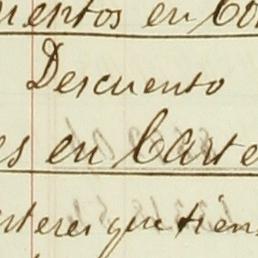 mentos en Co
Descuento
es en Carte
rteres que tien